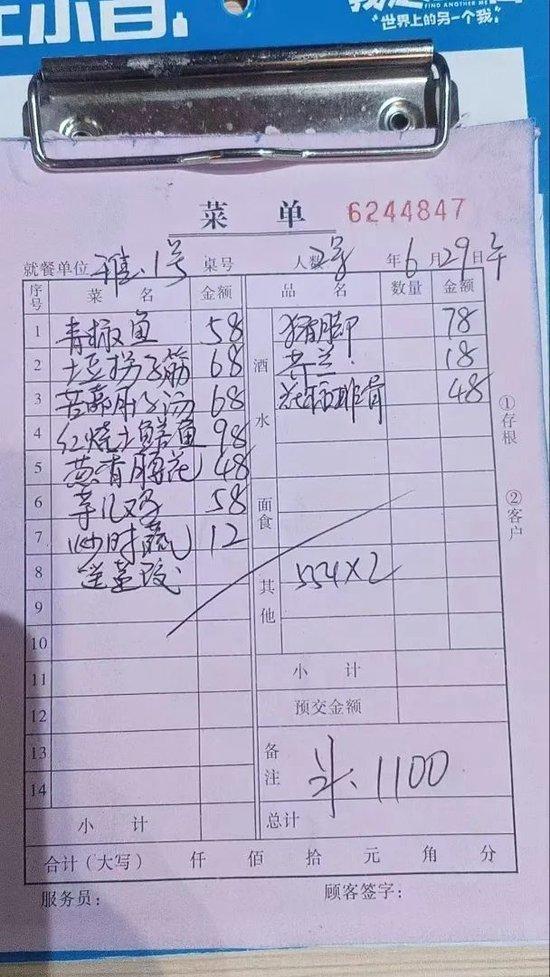 FIND ANOTHER ME
世界上的另一个我
菜 单 6244847
就餐单位 雅.1号 桌号 人数 2号 年6月29日 午
序号 菜 名 金额 品 名 数量 金额
1 青椒鱼 58 猪脚 78
2 土豆拐子筋 68 18
3 68 花椒排骨 48
4 红烧土鳝鱼 98
5 葱香腰花 48
6 芋儿鸡 58
7 炒时蔬 12
8
9
10
11
12
13
14
酒水
面食
其他
554×2
小 计
预交金额
备注 1100
小 计 总计
合计(大写) 仟 佰 拾 元 角 分
服务员: 顾客签字:
①存根
②客户